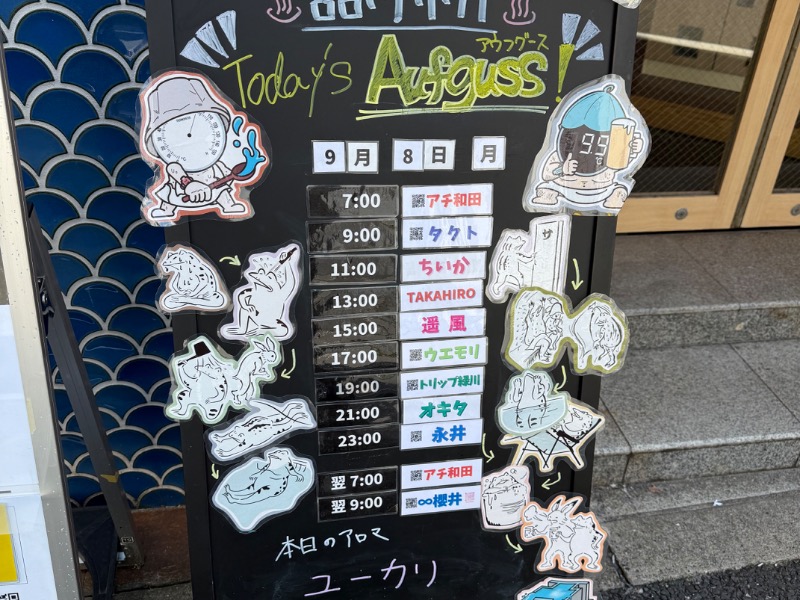 アウフグース
Today's Aufguss!
99
サ
9月 8日 月
7:00 アチ和田
9:00 タクト
11:00 ちいか
13:00 TAKAHIRO
15:00 遥風
17:00 ウエモリ
19:00 トリップ緑川
21:00 オキタ
23:00 永井
翌7:00 アチ和田
翌9:00 ∞櫻井
本日のアロマ
ユーカリ